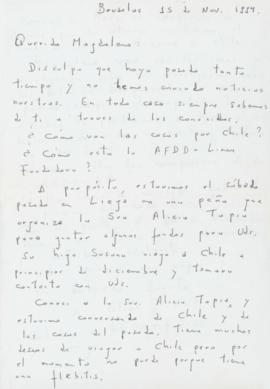 Bruselas 15 de Nov. 1984.
Querida Magdalena:
Disculpa que haya pasado tanto
tiempo y no hemos enviado noticias
nuestras. En todo caso siempre sabemos
de ti a traves de los conocidos.
¿ Cómo van las cosas por Chile?
¿ Cómo esta la AFDD - Línea
Fundadora?
A propósito, estuvimos el sábado
pasado en Lieja en una peña que
organizo la Sra Alicia Tapia
para juntar algunos fondos para Uds.
Su hija Susana viaja a Chile a
principios de diciembre y tomara
contacto con Uds.
Conoci a la Sra. Alicia Tapia, y
estuvimo conversando de Chile y de
las cosas del pasado. Tiene muchos
deseos de viajar a Chile pero por
el momento no puede porque tiene
una flebitis.